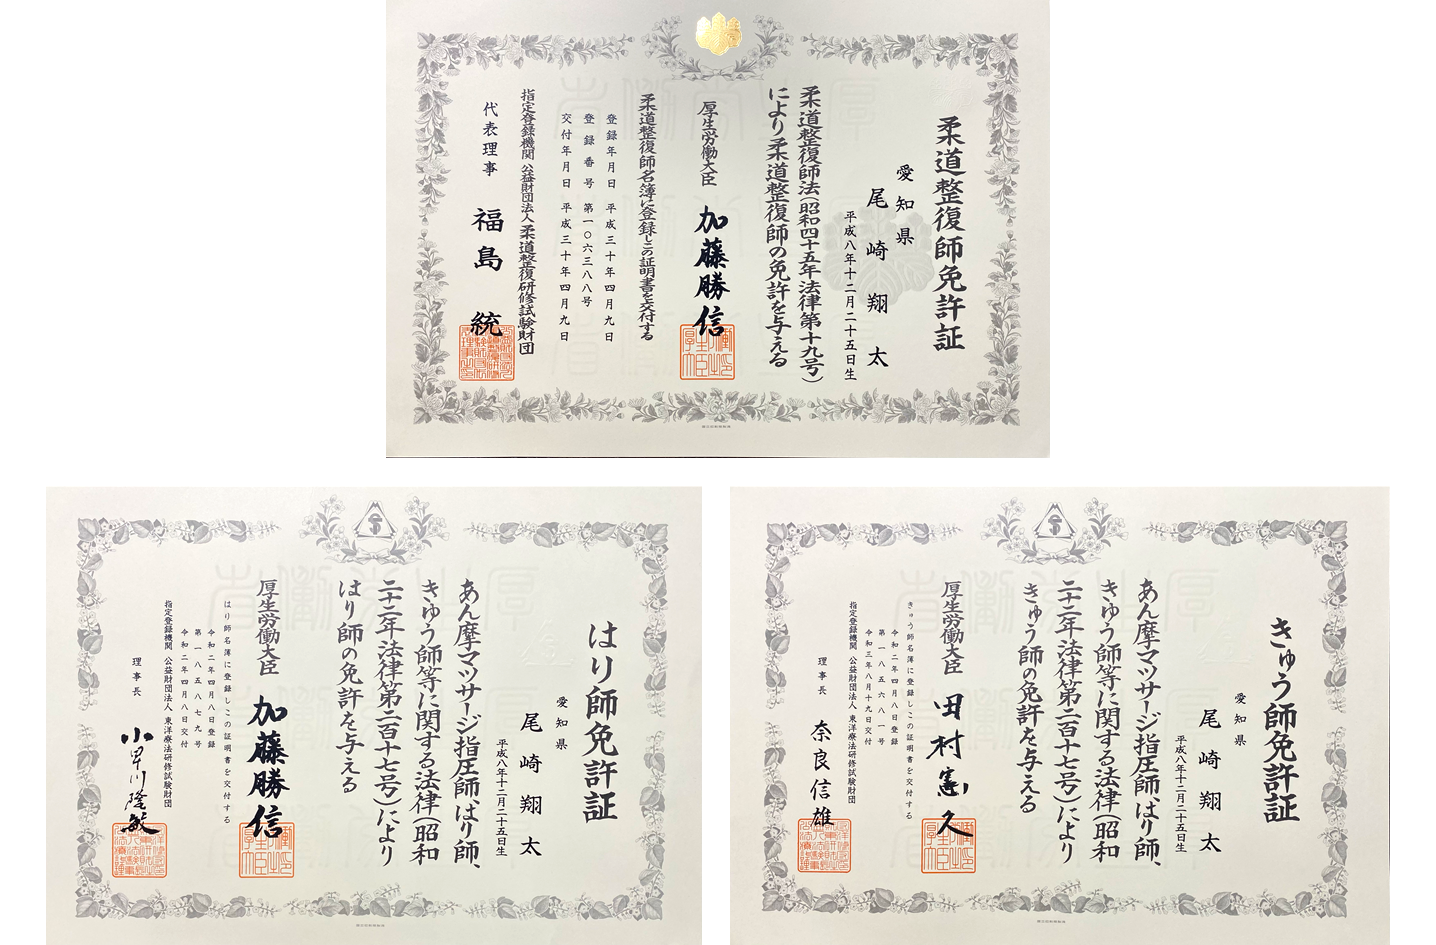 柔道整復師免許証
愛知県
尾崎翔太
平成八年十二月二十五日生
柔道整復師法(昭和四十五年法律第十九号)
により柔道整復師の免許を与える
厚生労働大臣 加藤勝信
柔道整復師名簿に登録しこの証明書を交付する
登録年月日 平成三十年四月九日
登録番号 第一〇六三八八号
交付年月日 平成三十年四月九日
指定登録機関 公益財団法人 柔道整復研修試験財団
代表理事 福島統
はり師免許証
愛知県
尾崎翔太
平成八年十二月二十五日生
あん摩マツサージ指圧師、はり師、
きゆう師等に関する法律(昭和
二十二年法律第二百十七号)により
はり師の免許を与える
厚生労働大臣 加藤勝信
はり師名簿に登録しこの証明書を交付する
令和二年四月八日登録
第一八五八七九号
令和二年四月八日交付
指定登録機関 公益財団法人 東洋療法研修試験財団
理事長 小早川隆敏
きゅう師免許証
愛知県
尾崎翔太
平成八年十二月二十五日生
あん摩マツサージ指圧師、はり師、
きゆう師等に関する法律(昭和
二十二年法律第二百十七号)により
きゅう師の免許を与える
厚生労働大臣 田村憲久
きゅう師名簿に登録しこの証明書を交付する
令和二年四月八日登録
第一八五六八一号
令和三年八月十九日交付
指定登録機関 公益財団法人 東洋療法研修試験財団
理事長 奈良信雄